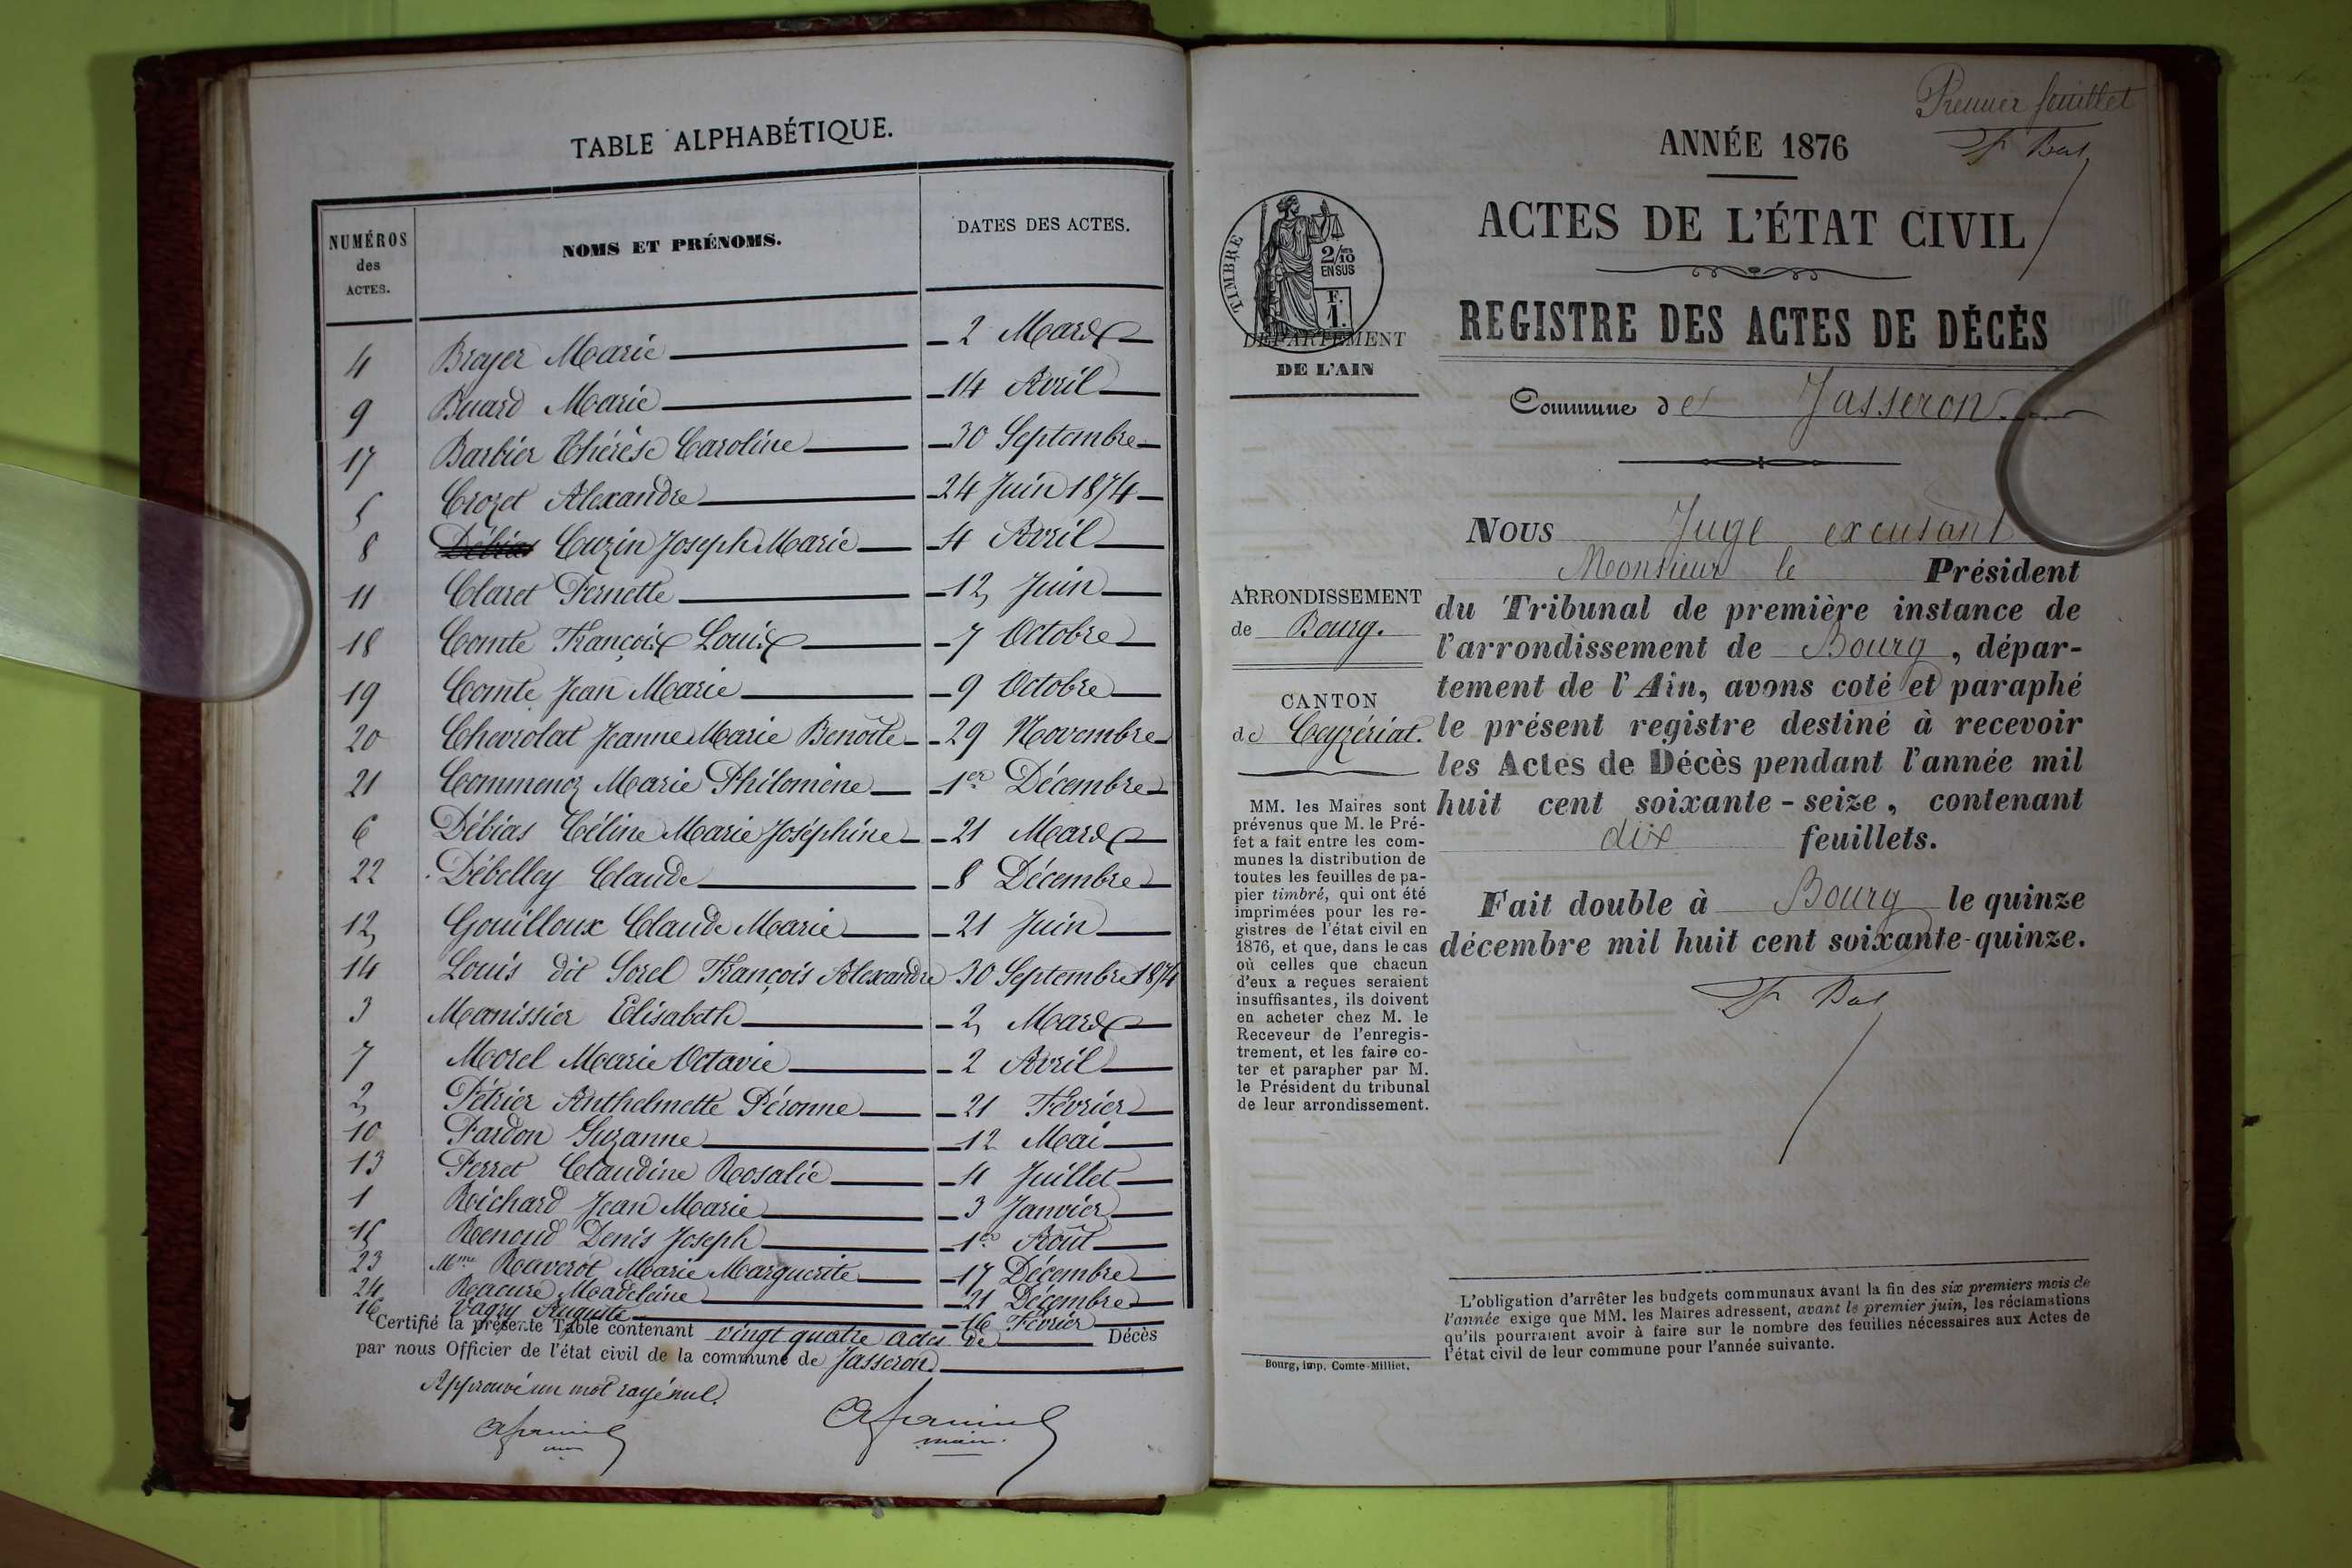 TABLE ALPHABÉTIQUE.
NUMÉROS des ACTES. NOMS ET PRÉNOMS. DATES DES ACTES.
4 Broyer Marie 2 Mars
9 Buard Marie 14 Avril
17 Barbier Thérèse Caroline 30 Septembre
5 Crozet Alexandre 24 Juin 1874
8 Débias Cuzin Joseph Marie 4 Avril
11 Claret Pernette 12 Juin
18 Comte François Louis 7 Octobre
19 Comte Jean Marie 9 Octobre
20 Chevrolat Jeanne Marie Benoîte 29 Novembre
21 Commenoz Marie Philomène 1er Décembre
6 Débias Céline Marie Joséphine 21 Mars
22 Débelley Claude 8 Décembre
12 Gouilloux Claude Marie 21 Juin
14 Louis dit Sorel François Alexandre 30 Septembre 1874
3 Monissier Elisabeth 2 Mars
7 Morel Marie Octavie 2 Avril
2 Pétrier Anthelmette Péronne 21 Février
10 Pardon Suzanne 12 Mai
13 Perret Claudine Rosalie 4 Juillet
1 Richard Jean Marie 3 Janvier
15 Renoud Denis Joseph 1er Août
23 Mme Raverot Marie Marguerite 17 Décembre
24 Madeleine 21 Décembre
16 Vagry Auguste 16 Février
Certifié la présente Table contenant vingt quatre actes de Décès
par nous Officier de l'état civil de la commune de Jasseron.
Approuvé un mot rayé nul.
maire.
Premier feuillet
ANNÉE 1876
ACTES DE L'ÉTAT CIVIL
TIMBRE
2/10
EN SUS
F.
1.
REGISTRE DES ACTES DE DÉCÈS
DÉPARTEMENT
DE L'AIN
Commune de Jasseron.
Nous Juge excusant
Monsieur le Président
du Tribunal de première instance de
l'arrondissement de Bourg, dépar-
tement de l'Ain, avons coté et paraphé
le présent registre destiné à recevoir
les Actes de Décès pendant l'année mil
huit cent soixante-seize, contenant
dix feuillets.
Fait double à Bourg le quinze
décembre mil huit cent soixante-quinze.
ARRONDISSEMENT
de Bourg.
CANTON
de Ceyzériat.
MM. les Maires sont
prévenus que M. le Pré-
fet a fait entre les com-
munes la distribution de
toutes les feuilles de pa-
pier timbré, qui ont été
imprimées pour les re-
gistres de l'état civil en
1876, et que, dans le cas
où celles que chacun
d'eux a reçues seraient
insuffisantes, ils doivent
en acheter chez M. le
Receveur de l'enregis-
trement, et les faire co-
ter et parapher par M.
le Président du tribunal
de leur arrondissement.
L'obligation d'arrêter les budgets communaux avant la fin des six premiers mois de
l'année exige que MM. les Maires adressent, avant le premier juin, les réclamations
qu'ils pourraient avoir à faire sur le nombre des feuilles nécessaires aux Actes de
l'état civil de leur commune pour l'année suivante.
Bourg, imp. Comte-Milliet.